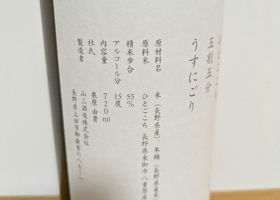 五割五分
うすにごり
原材料名 米（長野県産）・米麹（長野県産米
原料米 ひとごこち 長野県東御市八重原産
精米歩合 55%
アルコール分 15度
内容量 720ml
杜氏 栗原由貴
製造者 山三酒造株式会社
長野県上田市御嶽堂六八七ー一